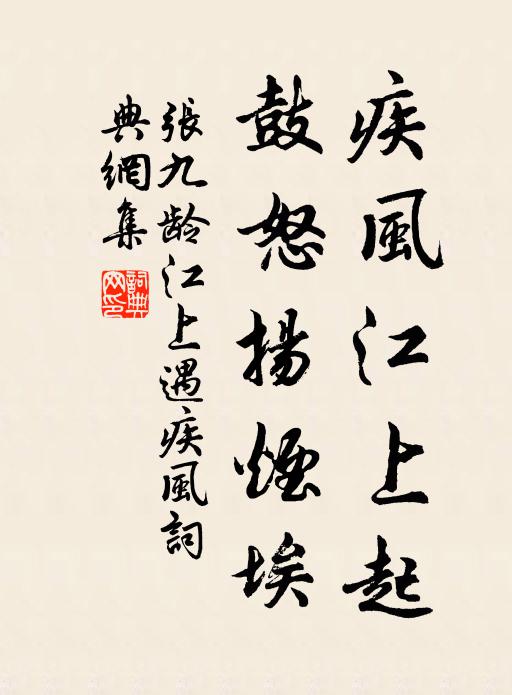 疾風江上起
鼓怒揚煙埃
張九齡江上遇疾風詞
典網集
詞典
网印